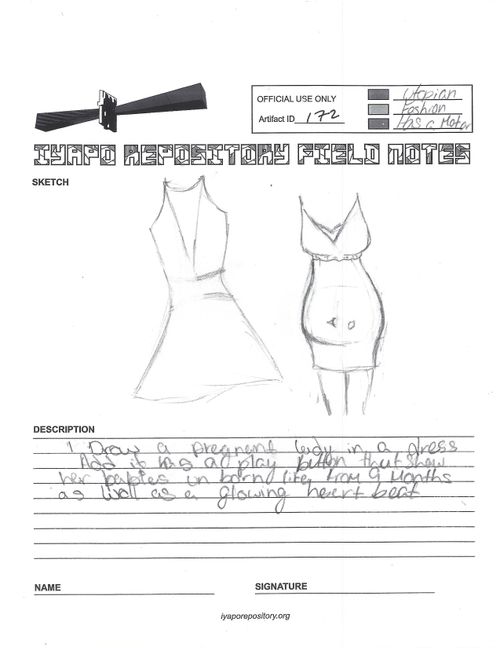 OFFICIAL USE ONLY
Artifact ID 172
Utopian
Fashion
Has a Motor
IYAPO REPOSITORY FIELD NOTES
SKETCH
DESCRIPTION
I Draw a pregnant lady in a dress
Add it has a play button that show
her babies un born life from 9 Months
as well as a glowing heart beat
NAME
SIGNATURE
iyaporepository.org